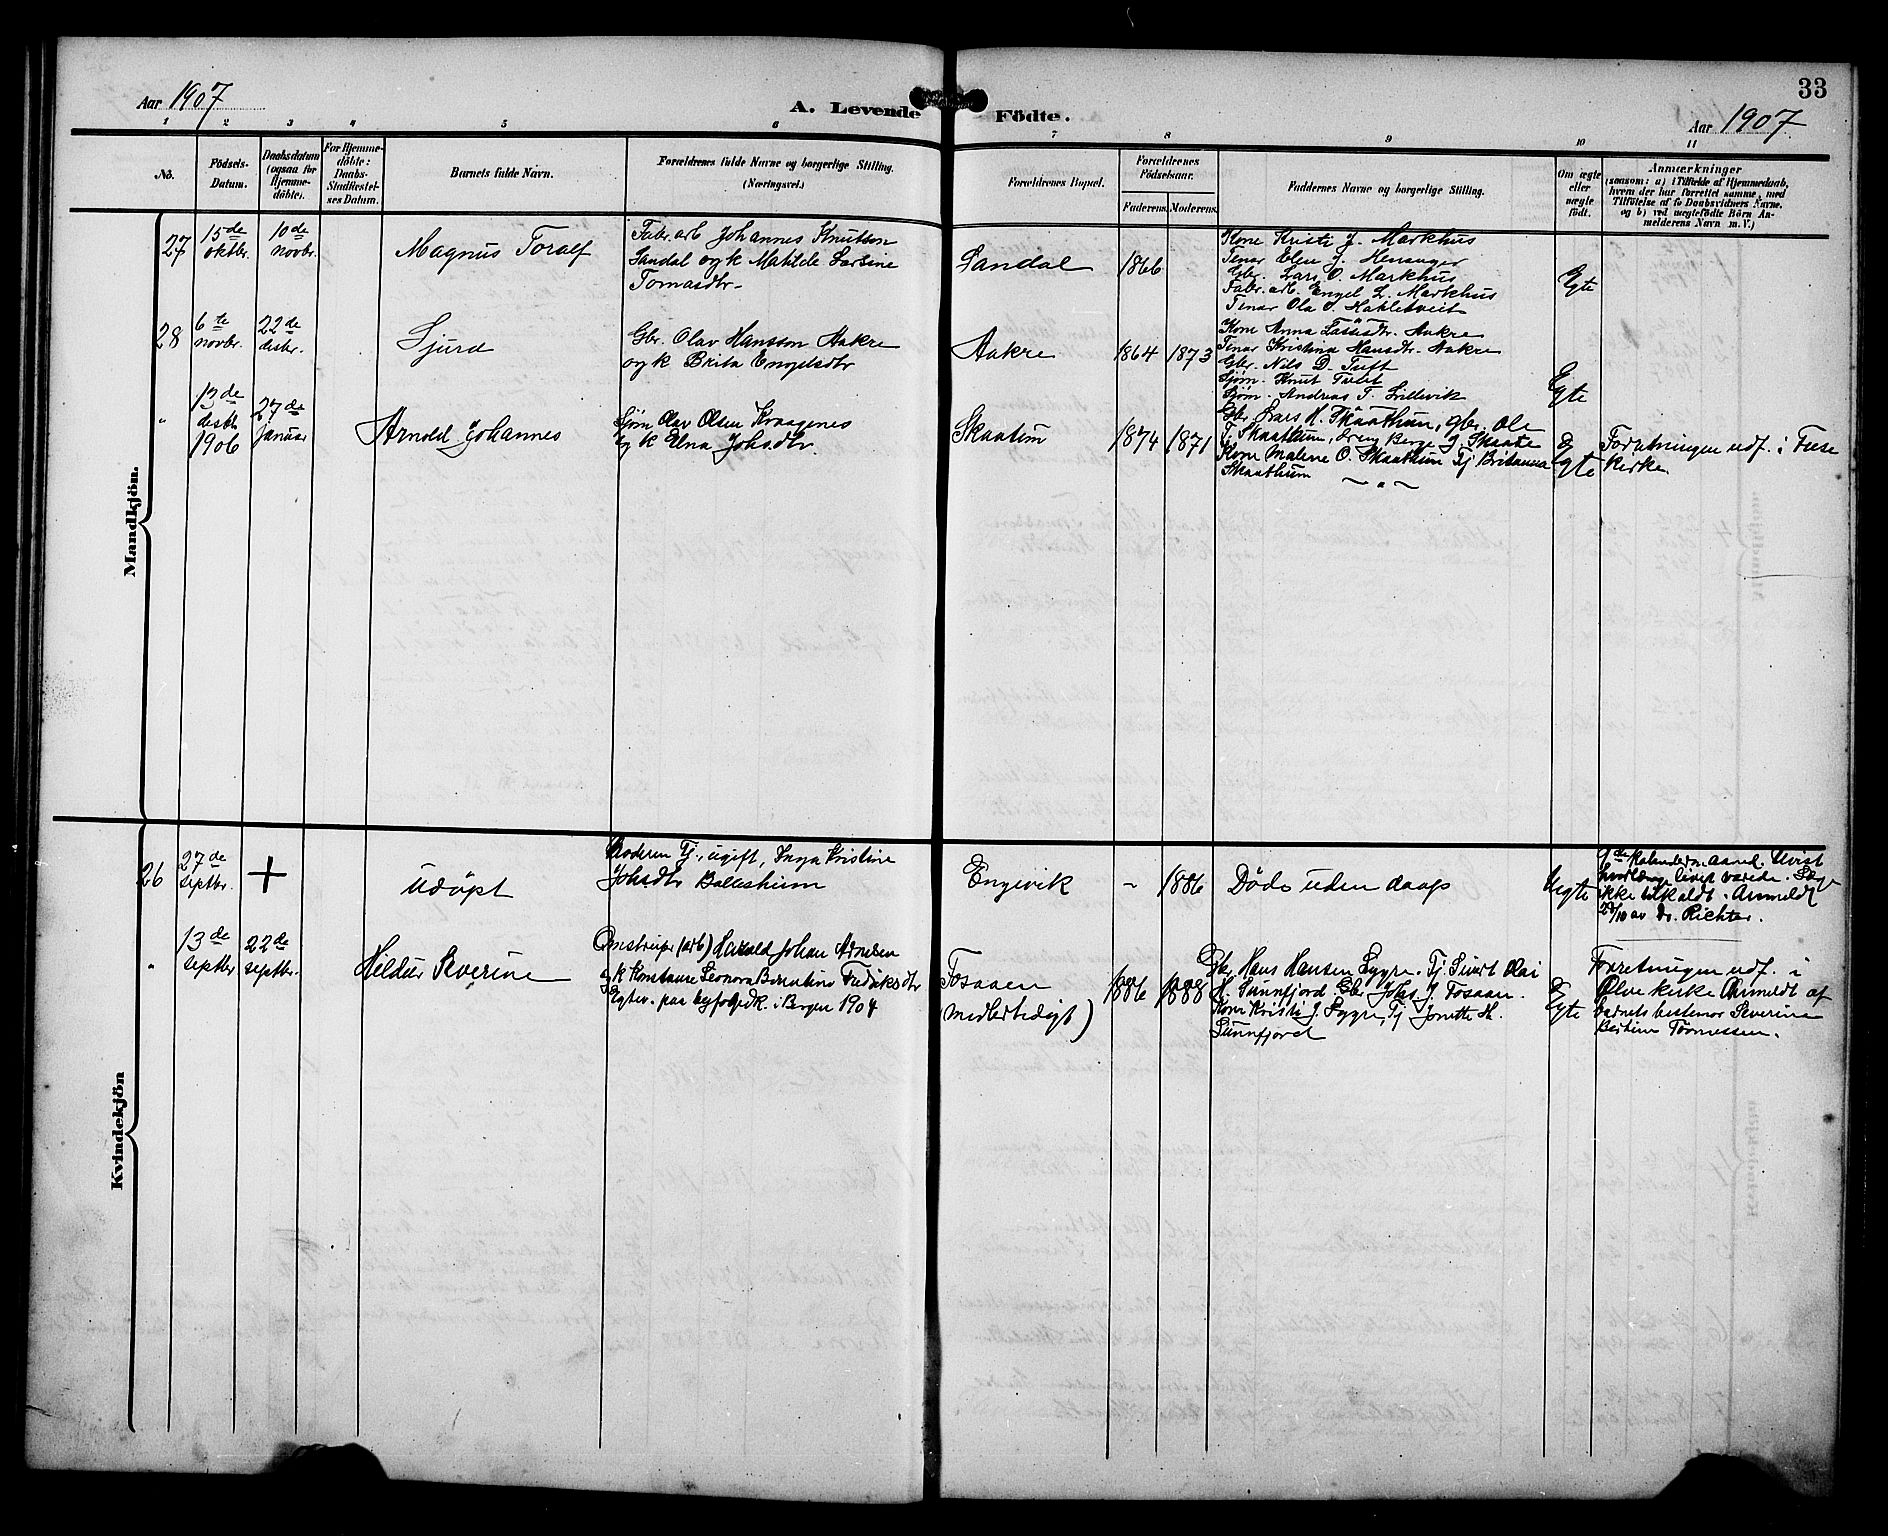 Aar 1907
A. Levende Födte.
33
Aar 1907.
1 2 3 4 5 6 7 8 9 10 11
No.
Födsels-
Datum.
Daabsdatum
(ogsaa for
Hjemme-
döbte).
For Hjemme-
döbte:
Daabs-
Stadfæstel-
ses Datum.
Barnets fulde Navn.
Forældrenes fulde Navne og borgerlige Stilling.
(Næringsvei.)
Forældrenes Bopæl.
Forældrenes
Födselsaar.
Faderens. Moderens.
Faddernes Navne og borgerlige Stilling.
Om ægte
eller
uægte
födt.
Anmærkninger
(saasom: a) i Tilfælde af Hjemmedaab,
hvem der har forrettet samme, med
Tilföielse af to Daabsvidners Navne,
og b) ved uægtefödte Börn An-
melderens Navn m. V.)
Mandkjön.
27
15de
oktbr.
10de
novbr.
Magnus Toralf
Fabr. arb. Johannes Knutson
Sandal og k Matilde Larsine
Tomasdtr
Sandal
1866
Kone Kristi J. Markhus
Tenar Elen J. Herranger
Gbr. Lars O. Markhus
Fabr. arb. Engel L. Markhus
Tenar Ola O.
Egte
28
6te
novbr.
22de
desbr.
Sjurd
Gbr. Olav Hansson Aakre
og k Brita Engelsdtr
Aakre
1864 1873
Kone Anna Lassesdtr. Aakre
Tenar Kristina Hansdtr. Aakre
Gbr. Nils D. Tuft
Sjøm. Knut Tuft
Sjøm. Andreas T. Lillevik
Egte
"
13de
desbr
1906
27de
Januar
Arnold Johannes
Sjøm Olav Olsen Kraagenes
og k Elna Johsdtr.
Skaatun
1874 1871
Gbr Lars H. Skaathun, gbr. Ole
T. Skaathun, dreng Berge J. Skaate
Kone Malene O. Skaathun Tj Britanna
Skaathun ~ " ~
Egte
Forretningen udf. i Fuse
kirke.
Kvindekjön
26
27de
septbr.
+
udöpt
Moderen Tj., ugift, Inga Kristine
Johsdtr Baldersheim
Engevik
-
1886
Döde uden daap
Uegte
ikke tilkaldt. Anmeldt
29/10 av dr. Richter.
"
13de
septbr
22de
septbr.
Hildur Severine
(arb) Harald Johan Arnesen
og k Konstanse Leonora Berentine Fredriksdtr
Egtev. paa i Bergen 1904
Fosaaen
1886 1888
Gbr Hans Hansen Lygre. Tj Sundt Olai
H. Sunnfjord Gbr Johs J. Fosaan.
Kone Kristi J. Lygre, Tj Jonette H.
Sunnfjord
Egte
Forretningen udf. i
Ølve kirke Anmeldt af
barnets bestemor Severine
Bertine Tönnessen.